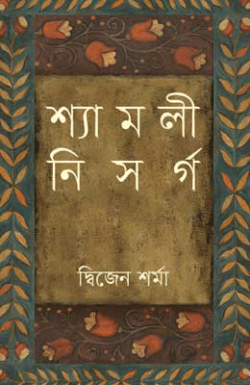 শ্যামলী
নিসর্গ
দ্বিজেন শর্মা